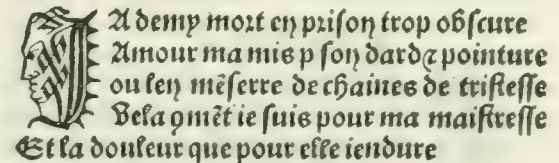 A demy mort en prison trop obscure
Amour ma mis ꝑ son dard ⁊ pointure
ou len mẽserre de chaines de tristesse
Vela ꝯmẽt ie suis pour ma maistresse
Et la douleur que pour elle iendure